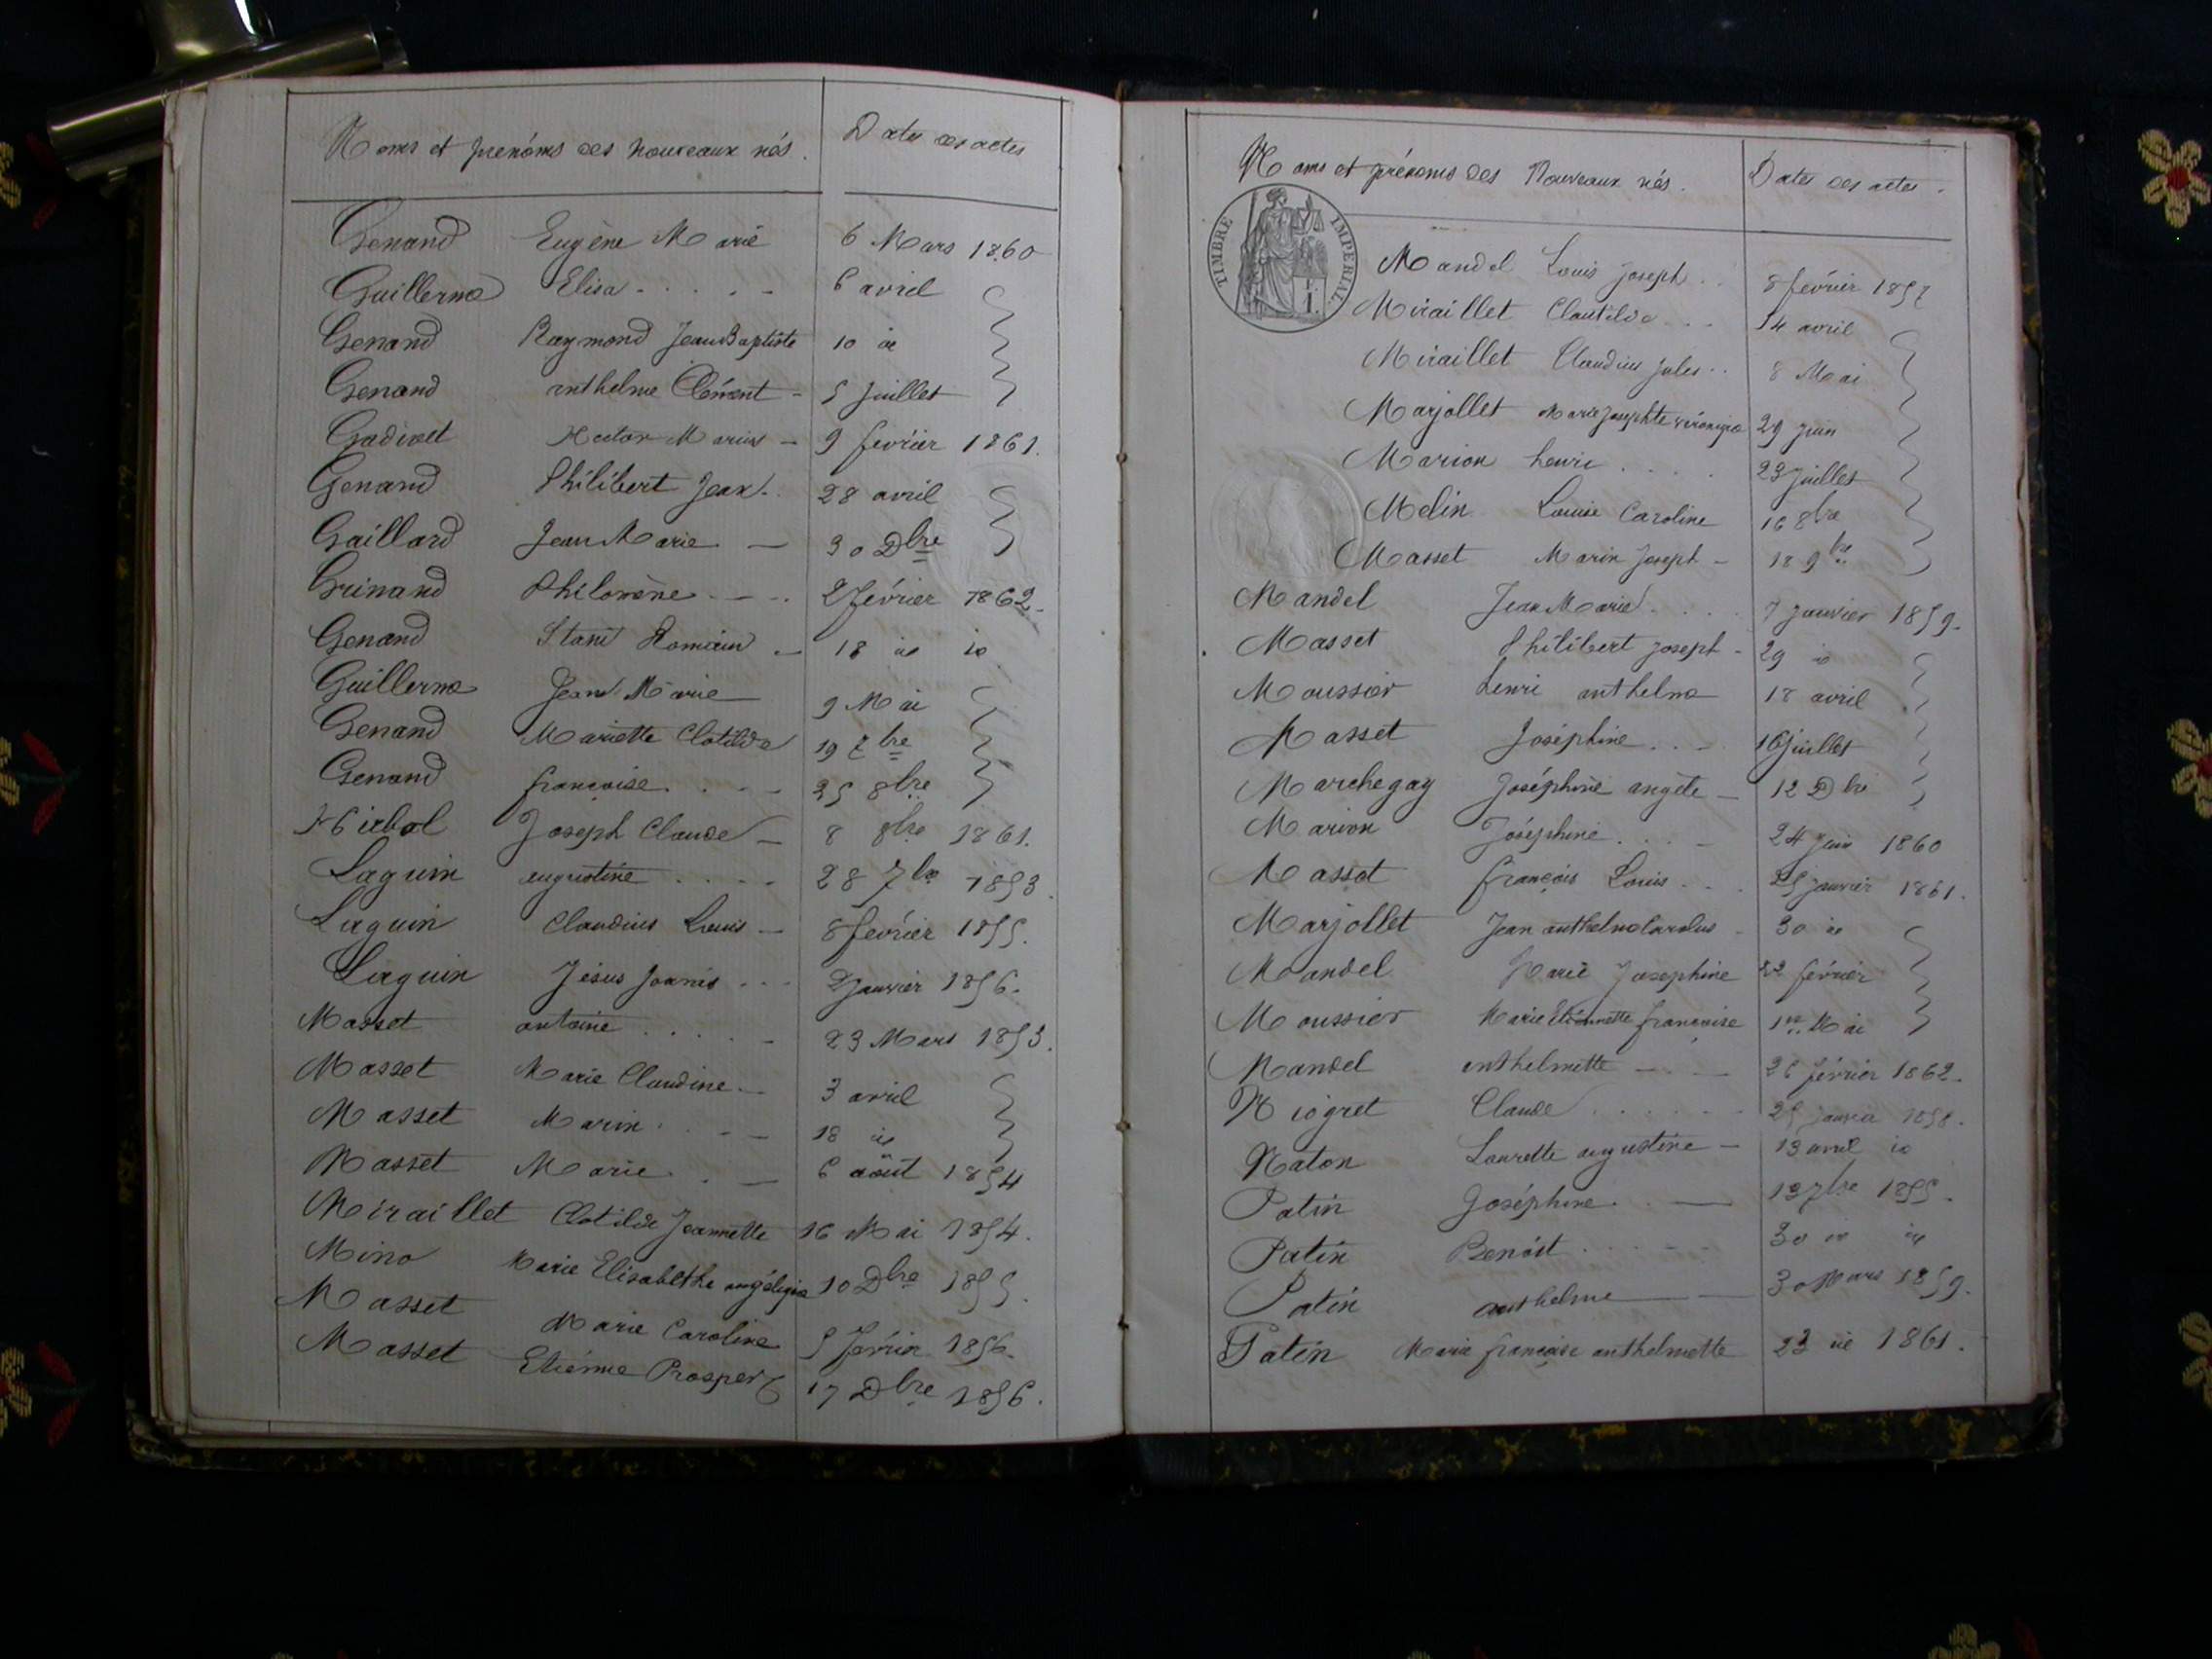 Noms et prénoms des nouveaux nés. Dates des actes
Genand Eugène Marie 6 Mars 1860
Guillerme Elisa 6 avril
Genand Raymond Jean Baptiste 10 id
Genand anthelme Clément 5 Juillet
Godivet Hector Marius 9 février 1861.
Genand Philibert Jean 28 avril
Gaillard Jean Marie 30 Dbre
Grinand Philomène 2 février 1862.
Genand Romain 18 id id
Guillerme Jean Marie 9 Mai
Genand Mariette Clotilde 19 7bre
Genand françoise 25 8bre
Joseph Claude 8 8bre 1861.
Laguin augustine 28 7bre 1853.
Laguin Claudius Louis 8 février 1855.
Laguin Jésus Joanès 2 Janvier 1856.
Masset antoine 23 Mars 1853.
Masset Marie Claudine 3 avril
Masset Marin 18 id
Masset Marie 6 août 1854
Miraillet Clotilde Jeannette 16 Mai 1854.
Mino Marie Elisabethe angéliqe 10 Dbre 1855.
Masset Marie Caroline 5 février 1856.
Masset Etienne Prosper 17 Dbre 1856.
Noms et prénoms des Nouveaux nés. Dates des actes.
TIMBRE IMPÉRIAL
Mandel Louis Joseph 8 février 1857
Miraillet Clautilde 14 avril
Miraillet Claudius Jules 8 Mai
Marjollet Marie Josephte véroniqe 29 Juin
Marion henri 23 Juillet
Melin Louise Caroline 16 8bre
Masset Marin Joseph 18 9bre
Mandel Jean Marie 7 Janvier 1859.
Masset Philibert Joseph 29 id
Moussier henri anthelme 18 avril
Masset Joséphine 16 Juillet
Marchegay Joséphine angèle 12 Dbre
Marion Joséphine 24 Juin 1860
Masset françois Louis 25 Janvier 1861.
Marjollet Jean anthelme 30 id
Mandel Marie Josephine 22 février
Moussier Marie Etiennette françoise 1er Mai
Mandel anthelmette 26 février 1862.
Niogret Claude 25 Janvier 1858.
Naton Laurette augustine 13 avril id
Patin Joséphine 13 7bre 1855.
Patin Benoit 30 id id
Patin anthelme 30 Mars 1859.
Patin Marie françoise anthelmette 23 id 1861.